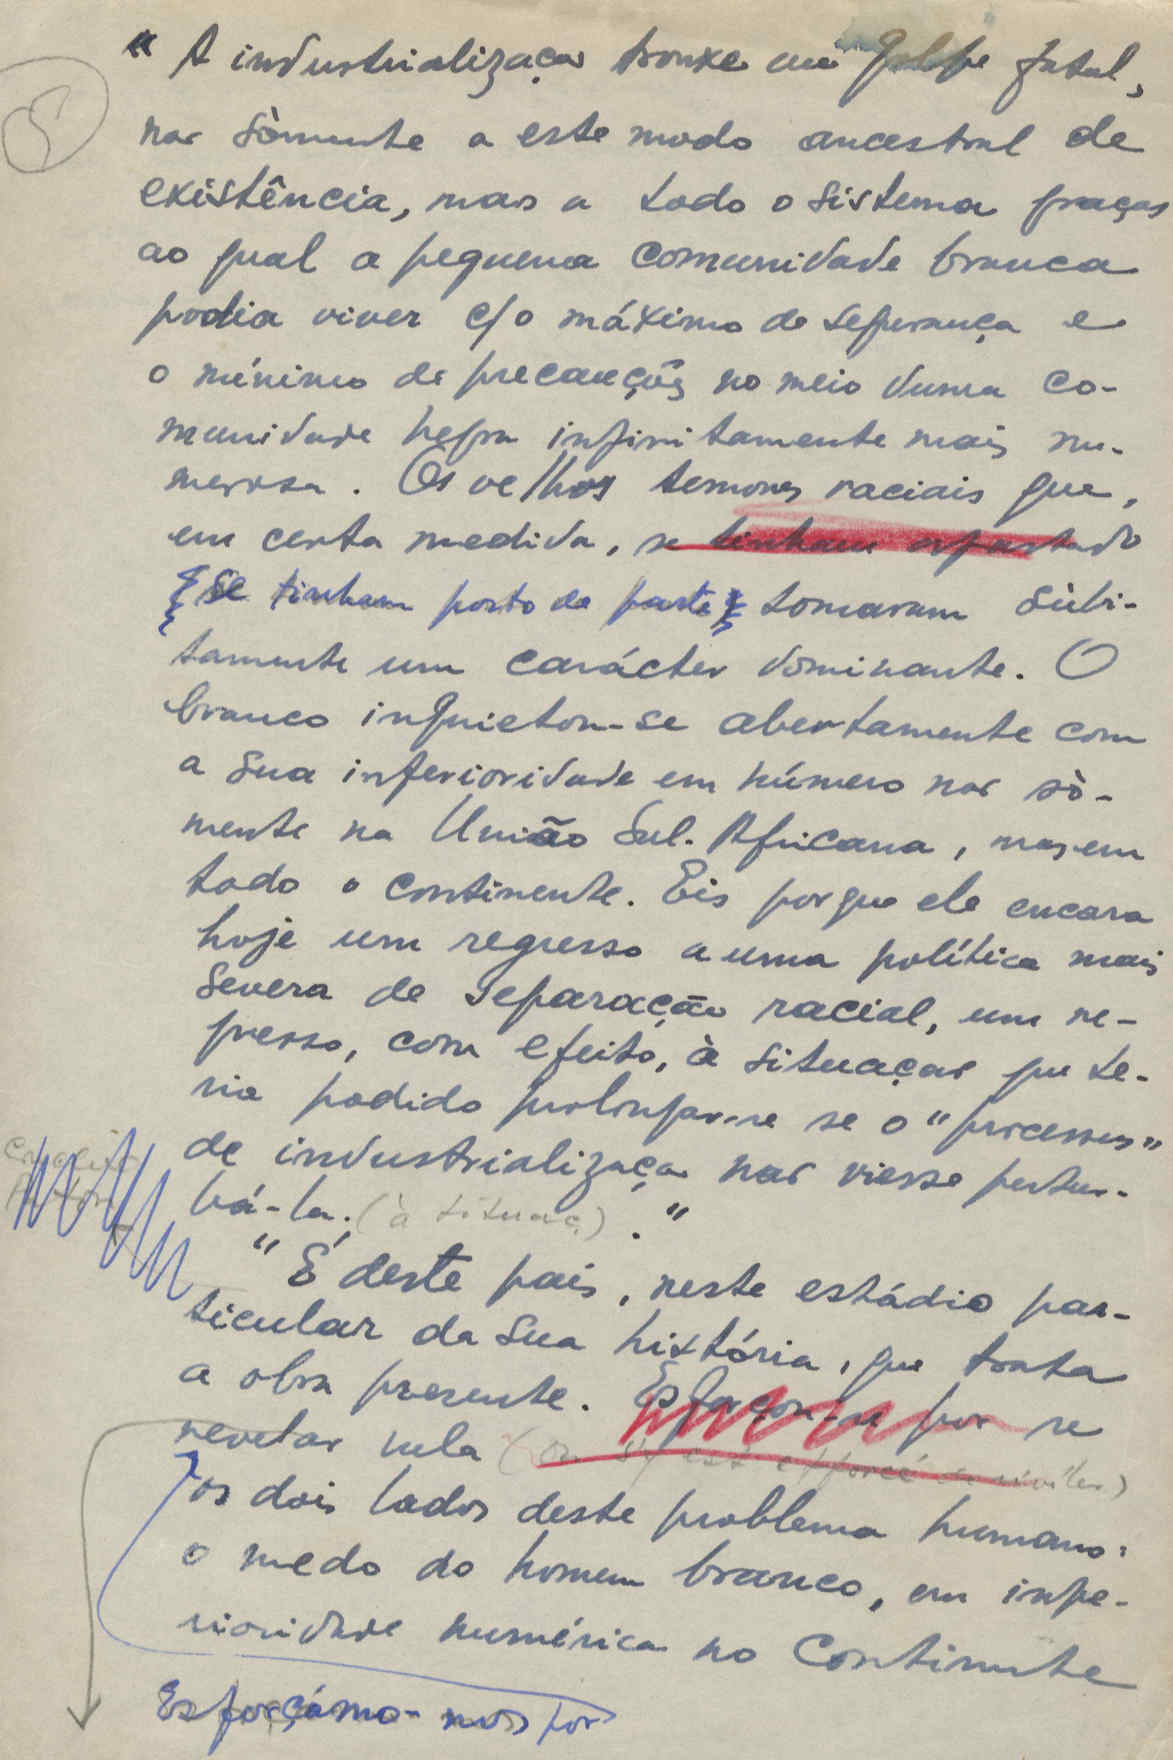 5
" A industrialização trouxe um golpe fatal,
não sòmente a este modo ancestral de
existência, mas a todo o sistema graças
ao qual a pequena comunidade branca
podia viver c/o máximo de segurança e
o mínimo de precauções no meio duma co-
munidade negra infinitamente mais nu-
merosa. Os velhos temores raciais que,
em certa medida, se tinham afastado
se tinham posto de parte tomaram sùbi-
tamente um carácter dominante. O
branco inquietou-se abertamente com
a sua inferioridade em número não sò-
mente na União Sul-Africana, mas em
todo o continente. Eis porque ele encara
hoje um regresso a uma política mais
severa de separação racial, um re-
gresso, com efeito, à situação que te-
ria podido prolongar-se se o "processus"
de industrialização não viesse pertur-
bá-la. (à situaç.) . "
" É deste país, neste estádio par-
ticular da sua história, que trata
a obra presente. Esforçou-se por se
revelar nela (on s'y est efforcé de révéler)
os dois lados deste problema humano:
o medo do homem branco, em infe-
rioridade numérica no Continente
Esforçámo-nos por